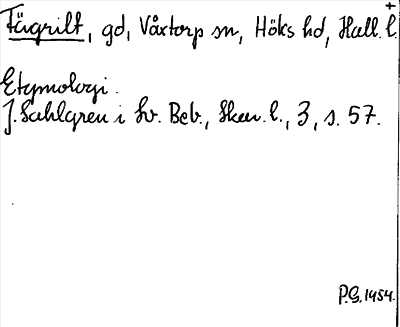 Fägrilt, gd, Våxtorp sn, Höks hd, Hall. l.
Etymologi.
J. Sahlgren i Sv. Beb., Skan. l., 3, s. 57.
P.G. 1454.